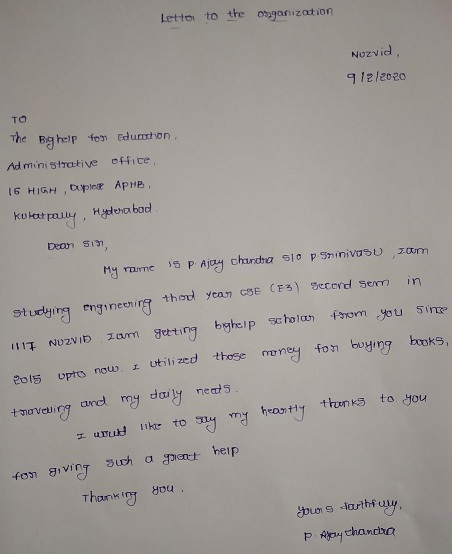 Letter to the organization
Nuzvid,
9/2/2020
TO
The Bighelp for Education,
Administrative office,
15 HIGH, Duplex APHB,
Kukatpally, Hyderabad.
Dear Sir,
My name is P. Ajay Chandra s/o P. Srinivasu, Iam
studying engineering third year CSE (E3) second sem in
IIIT NUZVID. Iam getting bighelp scholar from you since
2015 upto now. I utilized those money for buying books,
travelling and my daily needs.
I would like to say my heartly thanks to you
for giving such a great help
Thanking you.
Yours faithfully,
P. Ajay chandra